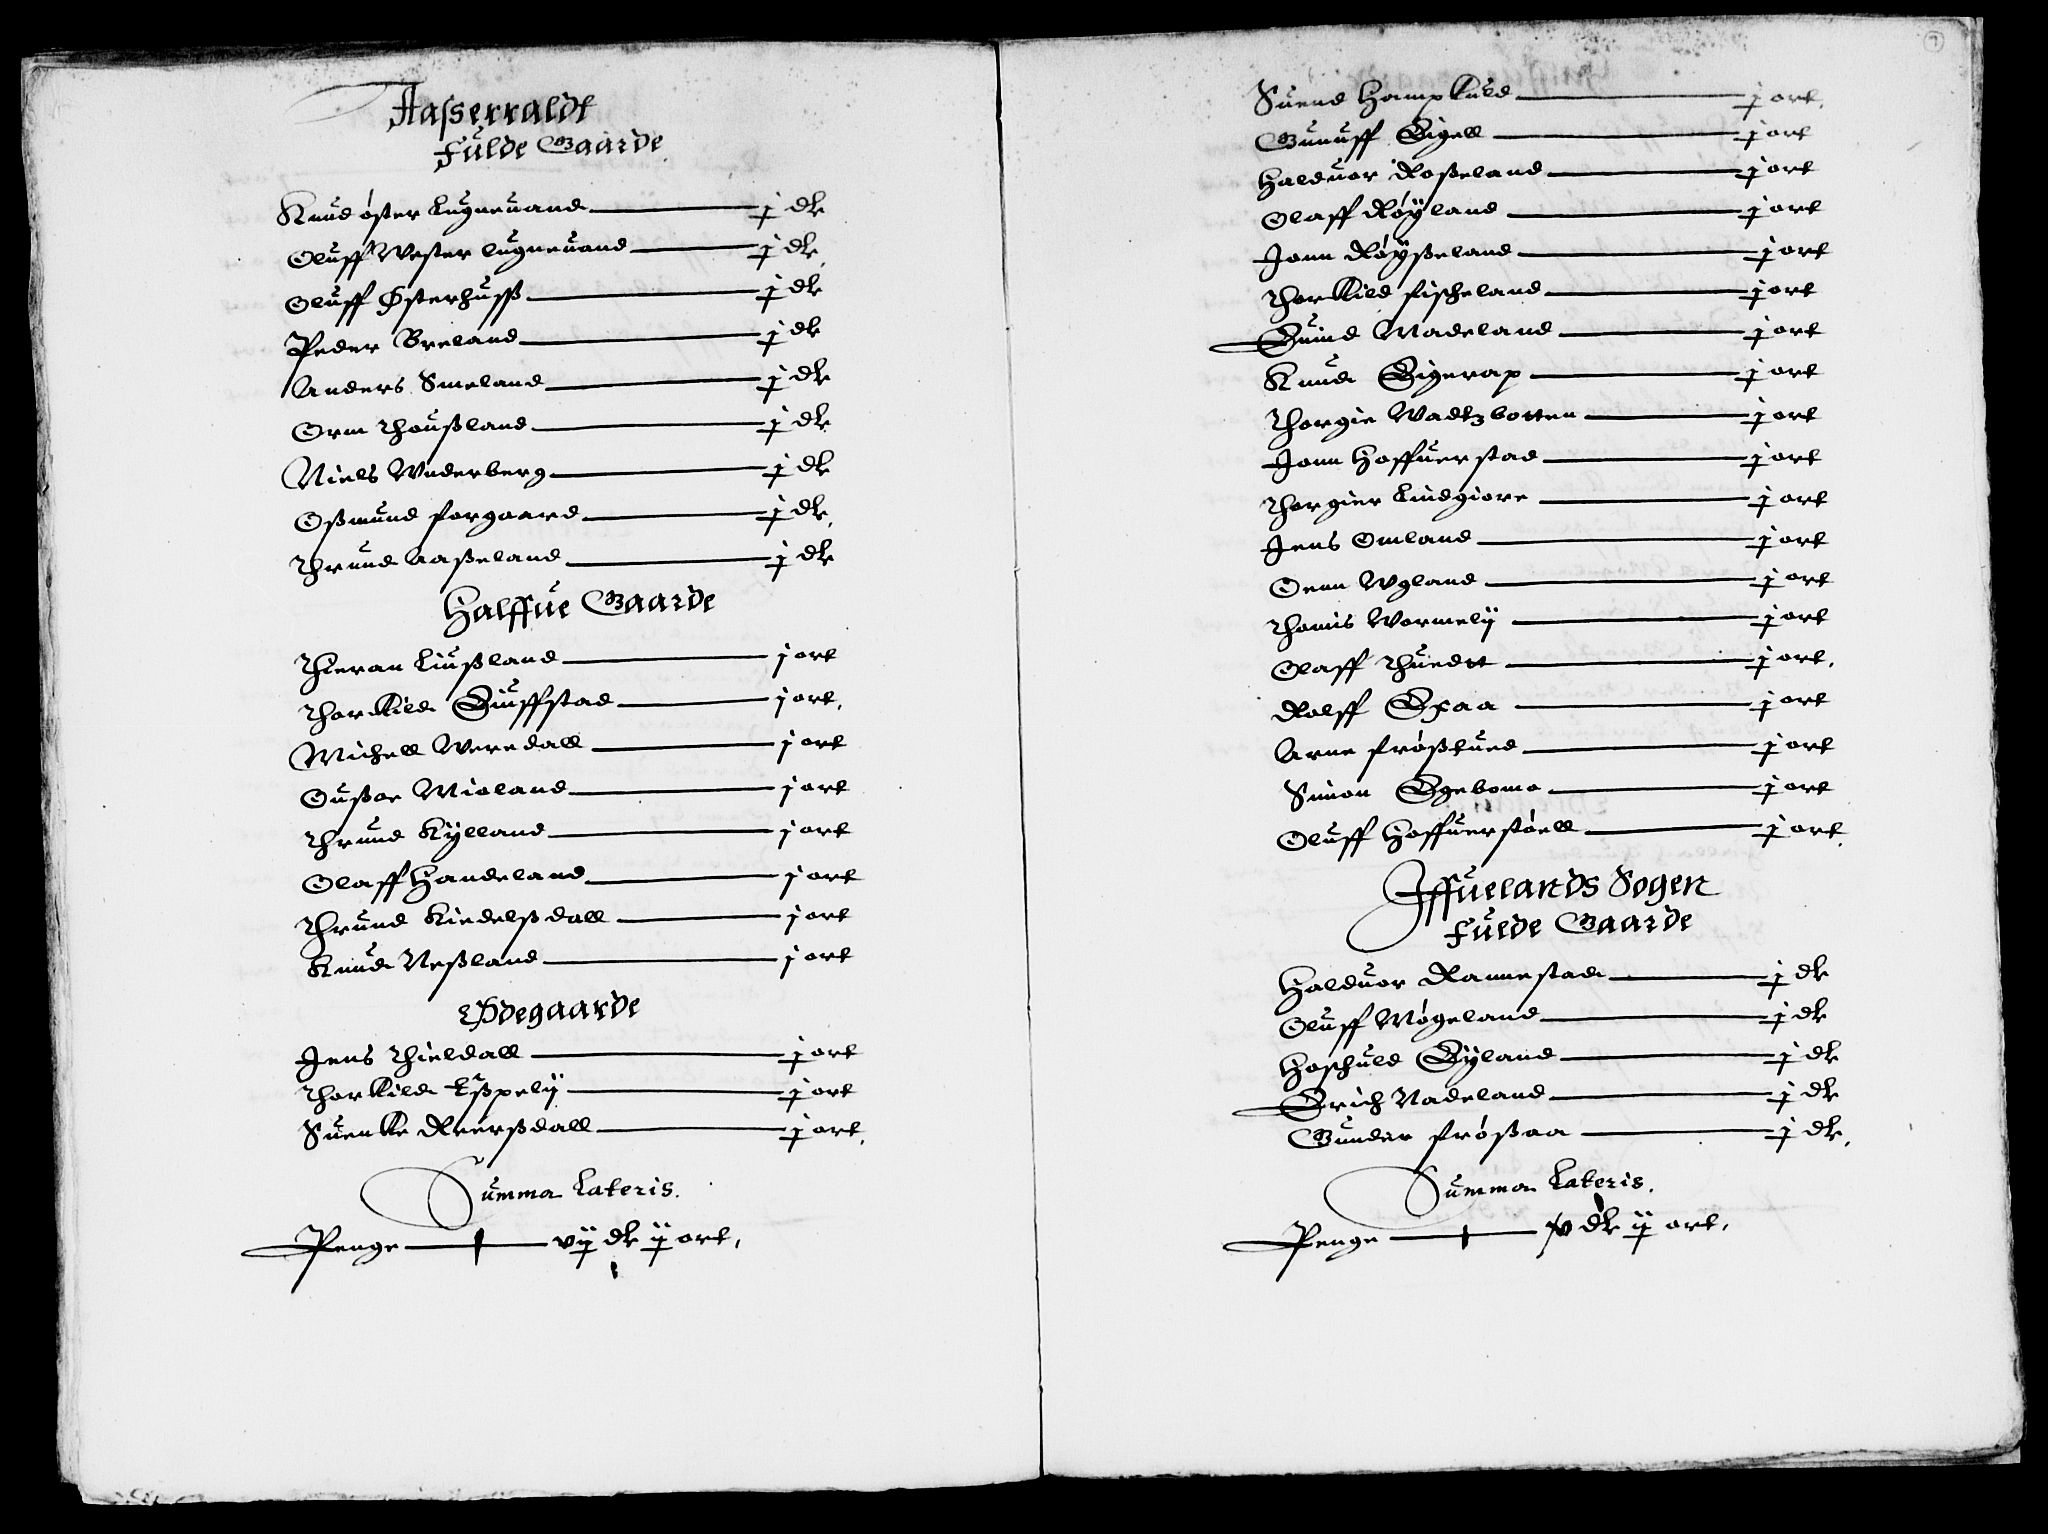 Aasserraldt
Fulde Gaarde
Knud øster Lugneuand j dlr
Oluff Wester lugneuand j dlr
Oluff Østerhuss j dlr
Peder Breland j dlr
Anders Smeland j dlr
Orm Thoußland j dlr
Niels Wederberg j dlr
Oßmund forgaard j dlr
Thrund Aaßeland j dlr
Halffue Gaarde
Thieran Liußland j ort
Thorkild Siuffstad j ort
Michell Weredall j ort
Gußor Mioland j ort
Thrund Kylland j ort
Olaff Handeland j ort
Thrund Kiedelßdall j ort
Knud Neßland j ort
Ødegaarde
Jens Thieldall j ort
Thorkild Eßpelij j ort
Suenke Reerßdall j ort
Summa Lateris.
Penge vij dlr ij ort
Suend Hampkuld j ort
Gunuff Eigell j ort
Halduor Roßeland j ort
Olaff Røyland j ort
Jonn Røyßeland j ort
Thorkild fischeland j ort
Suind Madeland j ort
Knud Eigerap j ort
Thorgie Wadtzbotten j ort
Jonn Hoffuerstad j ort
Thorgier Lindgiore j ort
Jens Omland j ort
Oenn Wgland j ort
Thomis Wormelij j ort
Olaff Thuedtt j ort
Rolff Spaa j ort
Arne frøßtued j ort
Simon Egebomo j ort
Oluff Hoffuerstøell j ort
Iffuelands Sogen
Fulde Gaarde
Halduor Rannestad j dlr
Oluff Møgeland j dlr
Hoschuld Eyland j dlr
Erich Nadeland j dlr
Gunder frøßaa j dlr
Summa Lateris.
Penge dlr ij ort